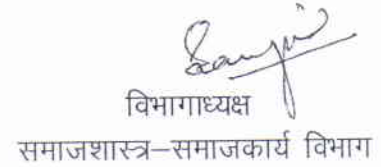 विभागाध्यक्ष
समाजशास्त्र–समाजकार्य विभाग